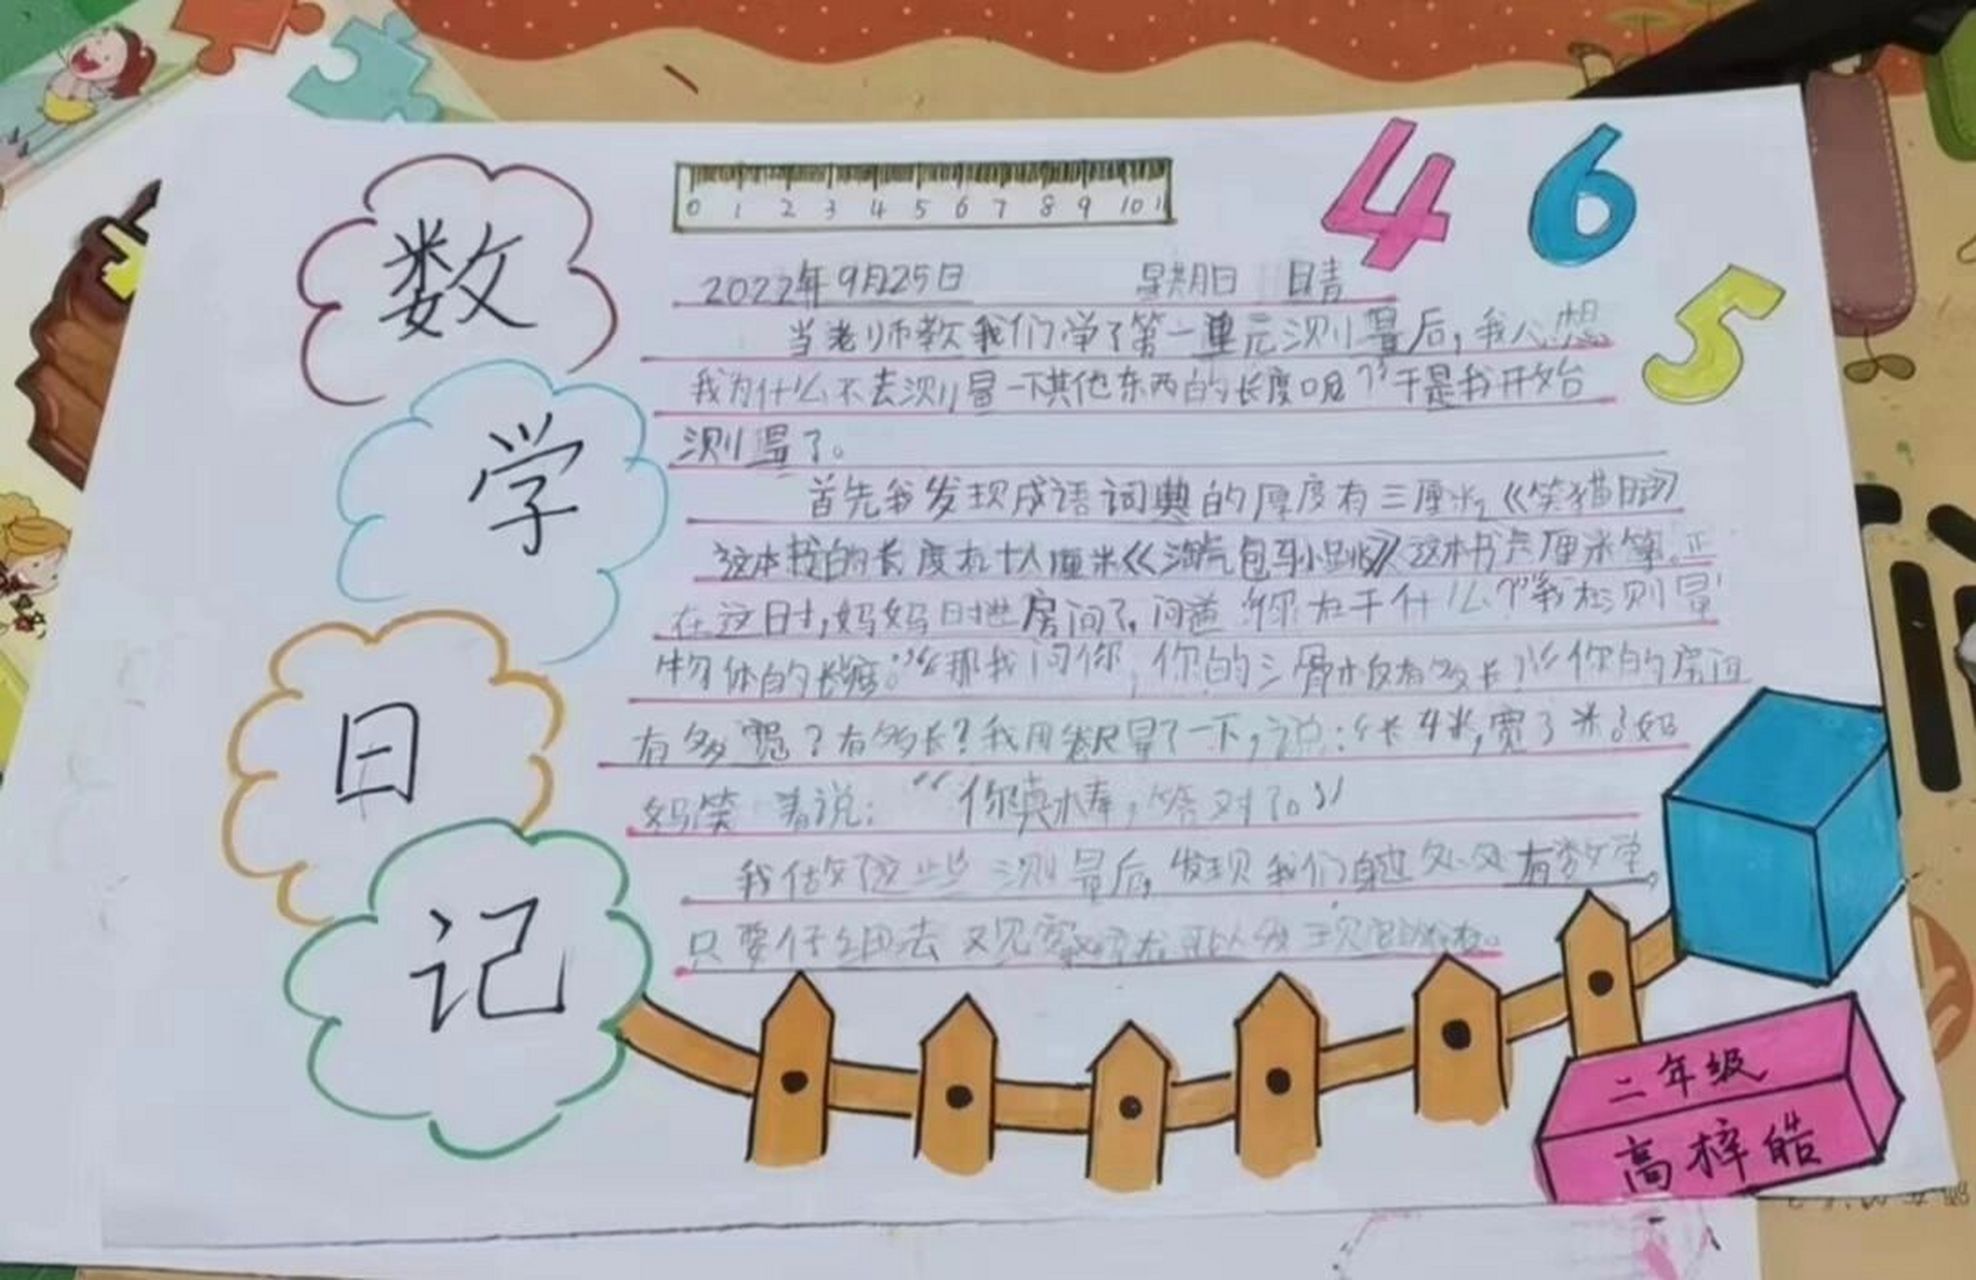 数
学
日
记
0 1 2 3 4 5 6 7 8 9 10 11
4 6
5
2022年9月25日 星期日 晴
当老师教我们学了第一单元测量后,我心想
我为什么不去测量一下其他东西的长度呢?于是我开始
测量了。
首先我发现成语词典的厚度有三厘米,《笑猫日记》
这本书的长度有十八厘米《淘气包马小跳》这本书 厘米等。正
在这时,妈妈进房间了,问道 你在干什么?"我在测量
物体的长度。""那我问你,你的三 有多长?""你的房间
有多宽?有多长?我用卷尺量了一下,说:"长4米,宽3米。妈
妈笑着说:"你真棒,答对了。"
我做好这些测量后,发现我们身边处处有数学,
只要仔细去观察
二年级
高梓皓